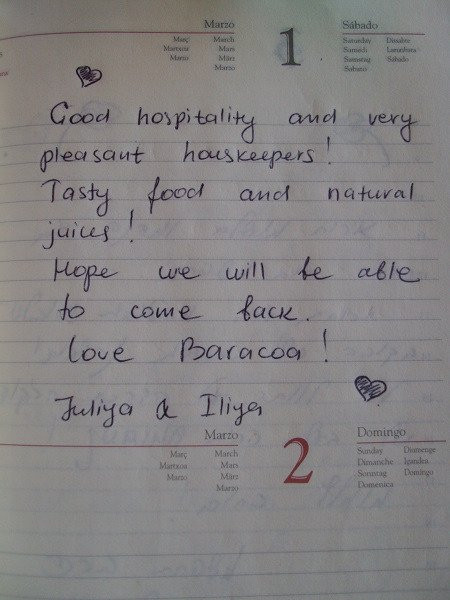 Marzo
Març March
Martxoa Mars
Marzo März
Marzo
1
Sábado
Saturday Dissabte
Samedi Larunbata
Samstag Sábado
Sabato
Good hospitality and very
pleasant houskeepers!
Tasty food and natural
juices!
Hope we will be able
to come back.
Love Baracoa!
Juliya & Iliya
Marzo
Març March
Martxoa Mars
Marzo März
Marzo
2
Domingo
Sunday Diumenge
Dimanche Igandea
Sonntag Domingo
Domenica